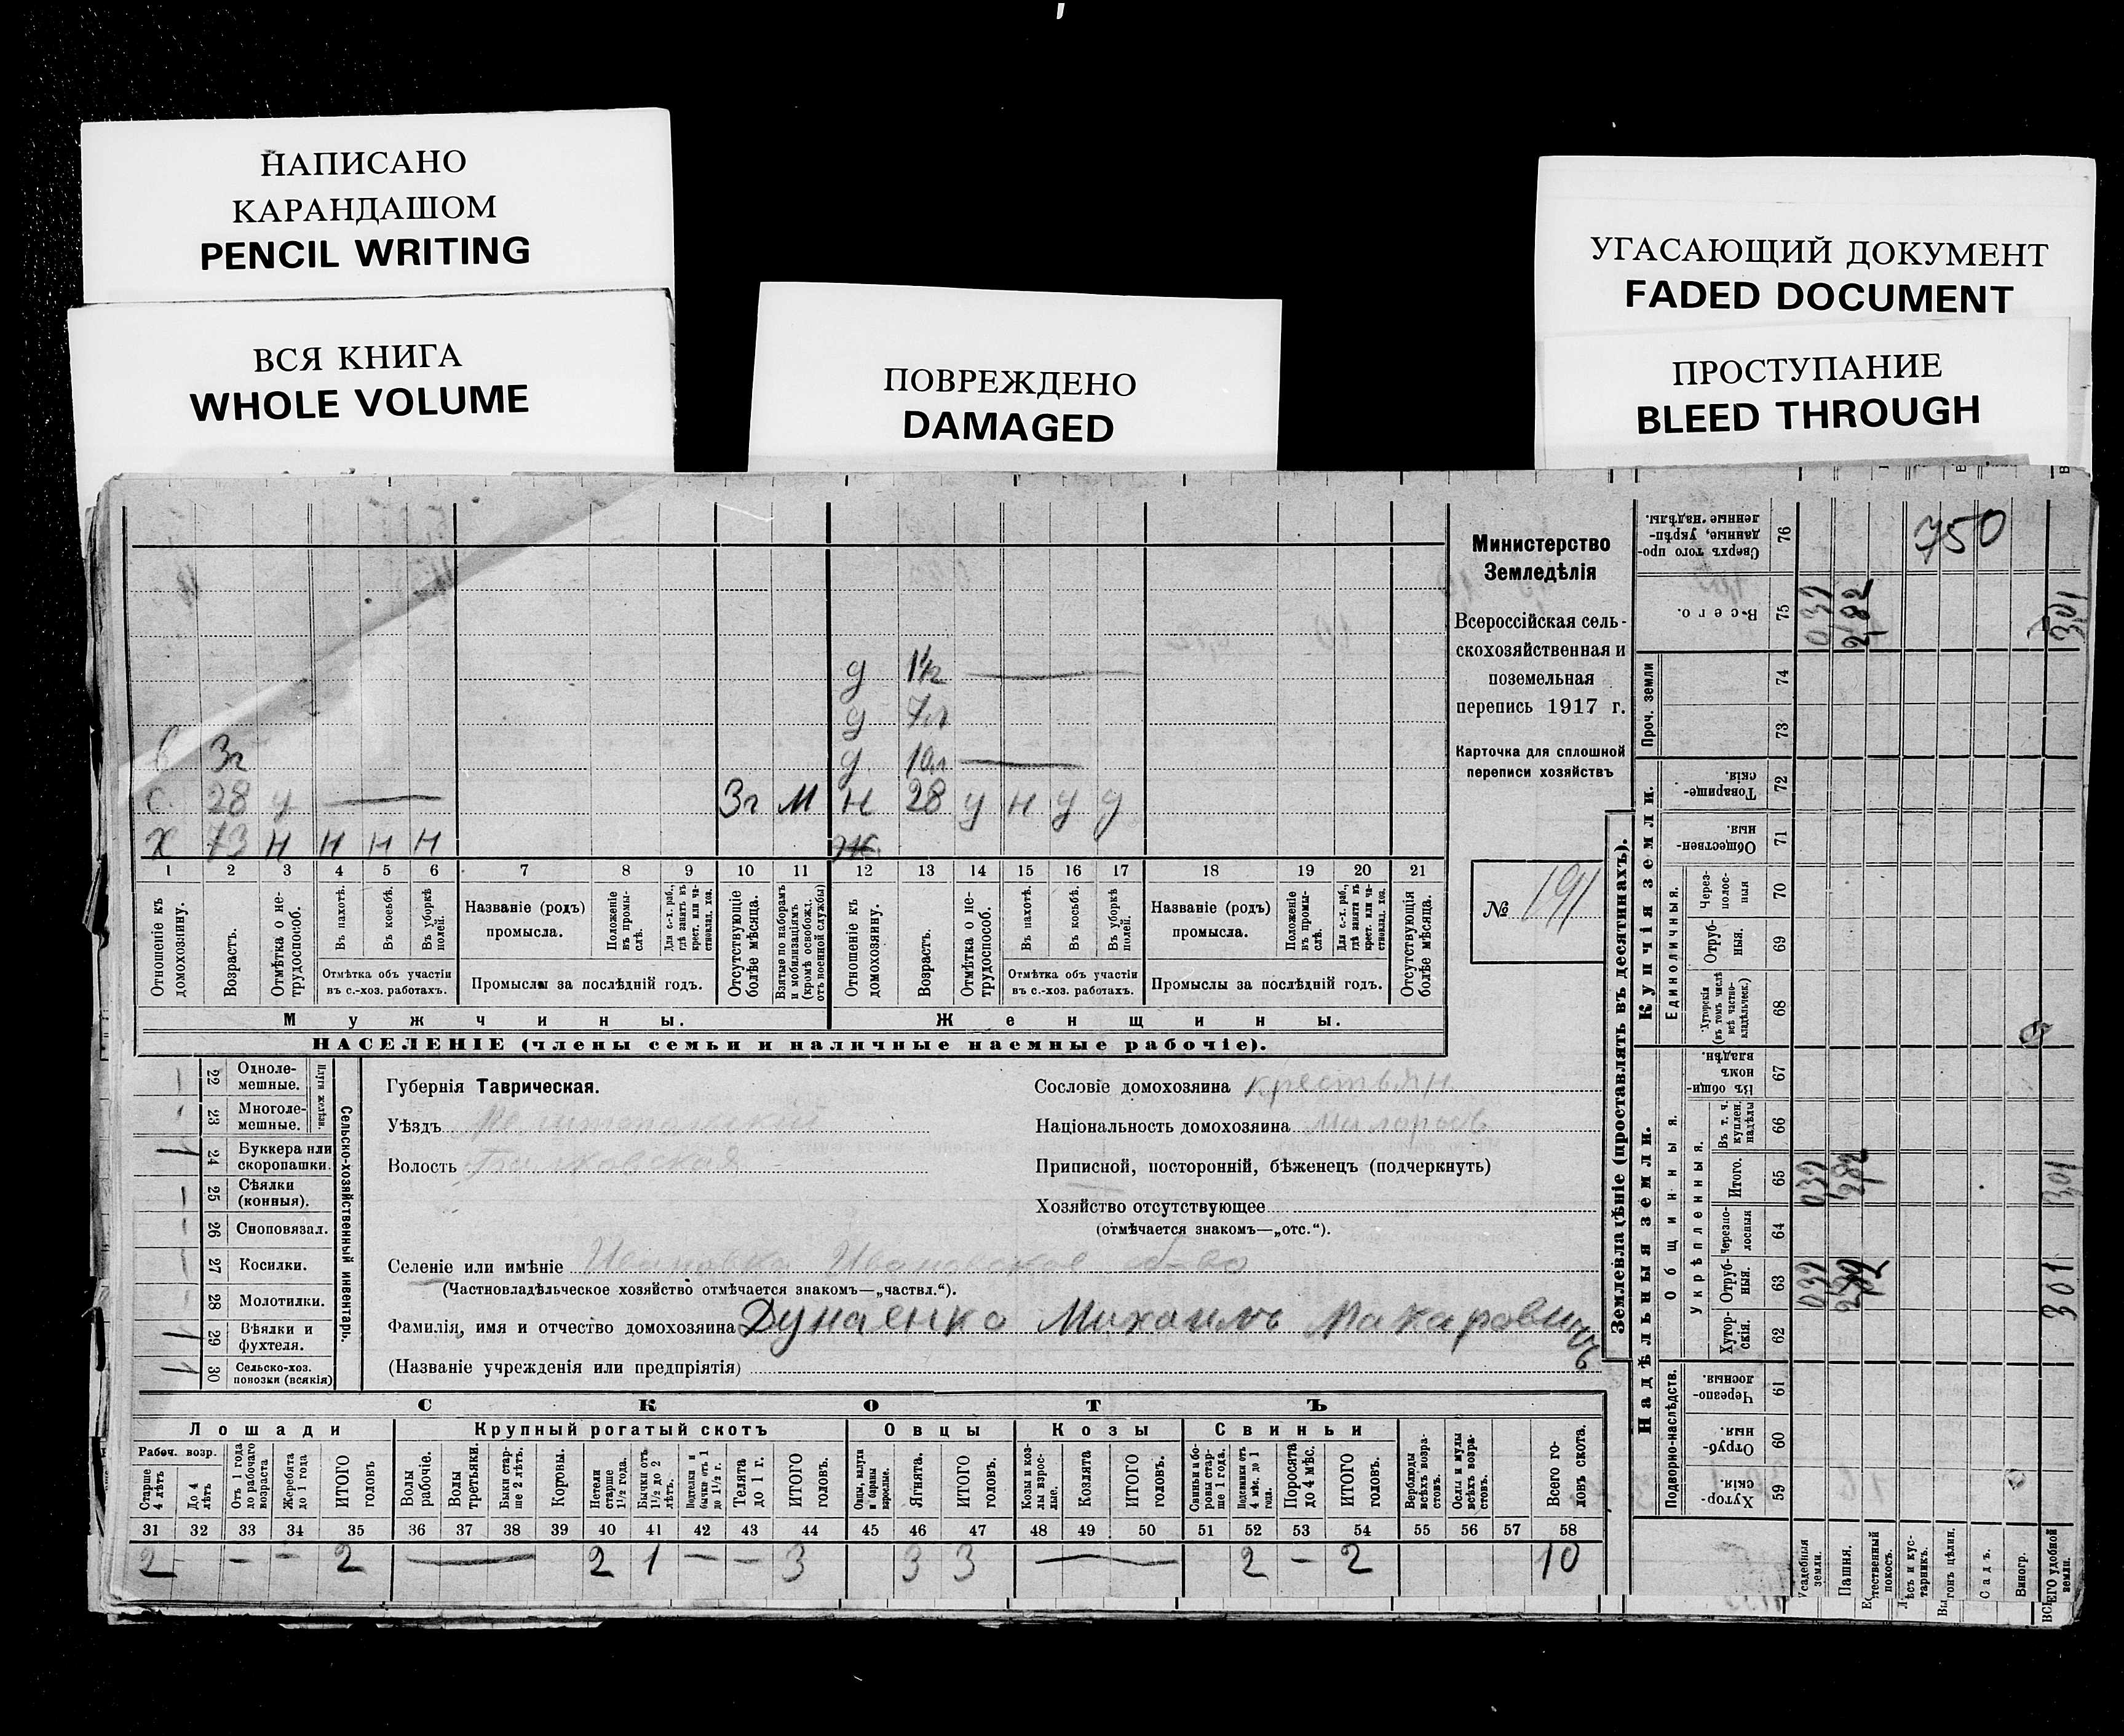 НАПИСАНО
КАРАНДАШОМ
PENCIL WRITING
ВСЯ КНИГА
WHOLE VOLUME
ПОВРЕЖДЕНО
DAMAGED
УГАСАЮЩИЙ ДОКУМЕНТ
FADED DOCUMENT
ПРОСТУПАНИЕ
BLEED THROUGH
д 1½г
д 7л
в 3г д 10л
с 28 у 3г М н 28 у н у у
х 73 н н н н ж
1 2 3 4 5 6 7 8 9 10 11 12 13 14 15 16 17 18 19 20 21
Отношеніе къ домохозяину.
Возрастъ.
Отмѣтка о нетрудоспособ.
Въ пахотѣ.
Въ косьбѣ.
Въ уборкѣ полей.
Отмѣтка объ участіи
въ с.-хоз. работахъ.
Названіе (родъ)
промысла.
Положеніе въ промыслѣ.
Для с.-х. раб., гдѣ занятъ въ крест. или частновлад. хоз.
Промыслы за послѣдній годъ.
Отсутствующіе болѣе мѣсяца.
Взятые по наборамъ и мобилизаціямъ (кромѣ освобожд. отъ военной службы)
Отношеніе къ домохозяину.
Возрастъ.
Отмѣтка о нетрудоспособ.
Въ пахотѣ.
Въ косьбѣ.
Въ уборкѣ полей.
Отмѣтка объ участіи
въ с.-хоз. работахъ.
Названіе (родъ)
промысла.
Положеніе въ промыслѣ.
Для с.-х. раб., гдѣ занята въ крест. или частновлад. хоз.
Промыслы за послѣдній годъ.
Отсутствующія болѣе мѣсяца.
Мужчины. Женщины.
НАСЕЛЕНІЕ (члены семьи и наличные наемные рабочіе).
Министерство
Земледѣлія
Всероссійская сель-
скохозяйственная и
поземельная
перепись 1917 г.
Карточка для сплошной
переписи хозяйствъ
№ 191
22 Однолемешные.
23 Многолемешные.
Плуги желѣзн.
1 24 Буккера или скоропашки.
25 Сѣялки (конныя).
26 Сноповязал.
27 Косилки.
28 Молотилки.
1 29 Вѣялки и фухтеля.
1 30 Сельско-хоз. повозки (всякія)
Сельско-хозяйственный инвентарь.
Губернія Таврическая.
Уѣздъ Мелитопольскій
Волость
Селеніе или имѣніе
(Частновладѣльческое хозяйство отмѣчается знакомъ—„частвл.“).
Фамилія, имя и отчество домохозяина Дунаенко Михаилъ Макаровичъ
(Названіе учрежденія или предпріятія)
Сословіе домохозяина крестьян
Национальность домохозяина малоросъ
Приписной, посторонній, бѣженецъ (подчеркнуть)
Хозяйство отсутствующее
(отмѣчается знакомъ—„отс.“).
СКОТЪ
Лошади Крупный рогатый скотъ Овцы Козы Свиньи
Рабоч. возр.
Старше 4 лѣтъ
До 4 лѣтъ
Отъ 1 года до рабочаго возраста
Жеребята до 1 года
ИТОГО головъ
Волы рабочіе.
Волы третьяки.
Быки старше 2 лѣтъ.
Коровы.
Нетели старше 1½ года.
Бычки отъ 1½ до 2 лѣтъ.
Подтелки и бычки отъ 1 до 1½ г.
Телята до 1 г.
ИТОГО головъ.
Овцы, валухи и бараны взрослые.
Ягнята.
ИТОГО головъ.
Козы и козлы взрослые.
Козлята
ИТОГО головъ.
Свиньи и боровы старше 1 года.
Подсвинки отъ 4 мѣс. до 1 года.
Поросята до 4 мѣс.
ИТОГО головъ.
Верблюды всѣхъ возрастовъ.
Ослы и мулы всѣхъ возрастовъ.
Всего головъ скота.
31 32 33 34 35 36 37 38 39 40 41 42 43 44 45 46 47 48 49 50 51 52 53 54 55 56 57 58
2 – – 2 — 2 1 – – 3 3 3 — 2 – 2 10
Землевладѣніе (проставлять въ десятинахъ).
Надѣльныя земли. Купчія земли. Проч. земли
Подворно-наслѣдств.
Общинныя.
Укрѣпленныя.
Единоличныя.
Сверхъ того проданные, укрѣпленные надѣлы. 76 750
Всего. 75 039 282 301
74
73
Товарищескія. 72
Общественныя 71
Черезполосныя 70
Отрубныя. 69
Хуторскія (въ томъ числѣ всѣ частновладѣльческ.) 68
Въ общинномъ владѣн. 67
Въ т. ч. куплен. надѣлы 66
Итого. 65 039 282 301
Черезполосныя 64
Отрубныя. 63 039 301
Хуторскія. 62
Черезполосныя. 61
Отрубныя 60
Хуторскія 59
Усадебныя земли.
Пашня.
Естественный покосъ.
Лѣсъ и кустарникъ.
Выгонъ цѣлин.
Садъ.
Виногр.
ВСЕГО удобной земли.